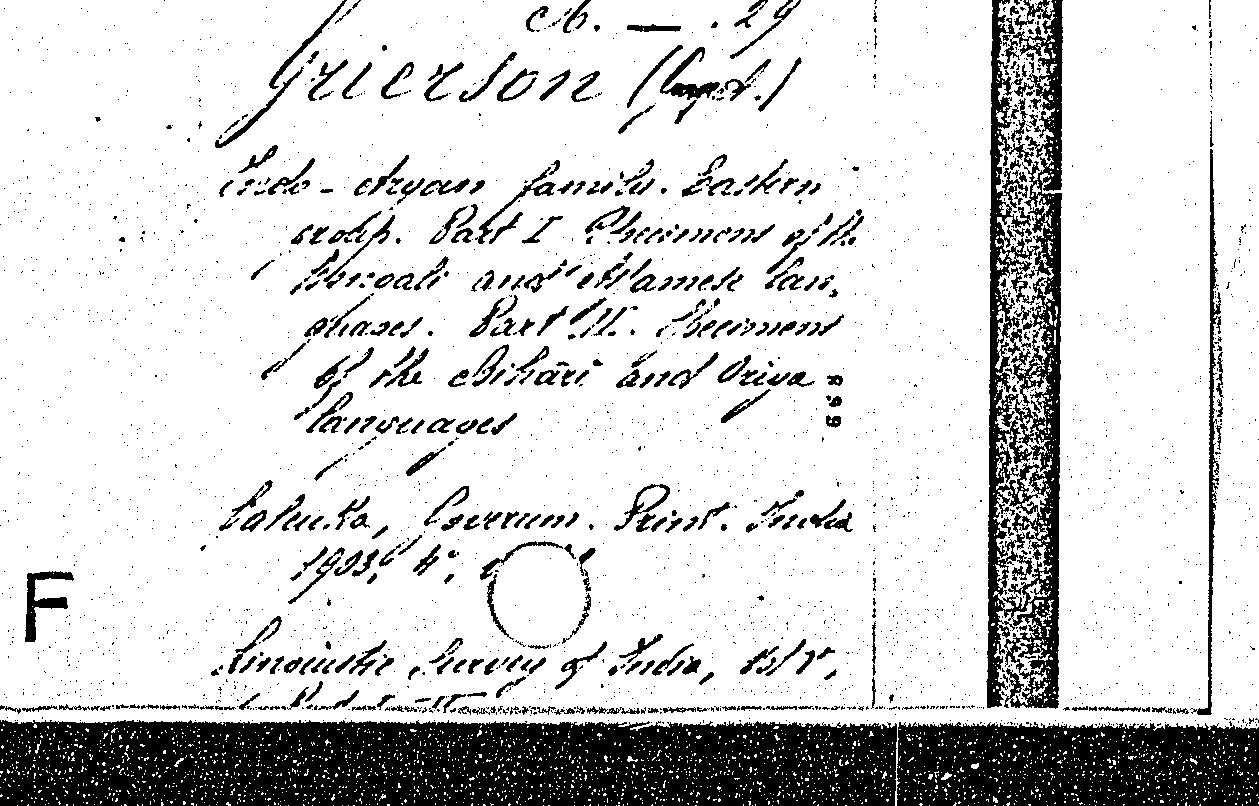 A. — . 29
Grierson
Indo-Aryan family. Eastern
group. Part I Specimens of the
Bengali and Assamese lan,
guages. Part II. Specimens
of the Bihārī and Oriya
languages
Calcutta, Governm. Print. India
1903, 4°,
F
Linguistic Survey of India, Vol V,